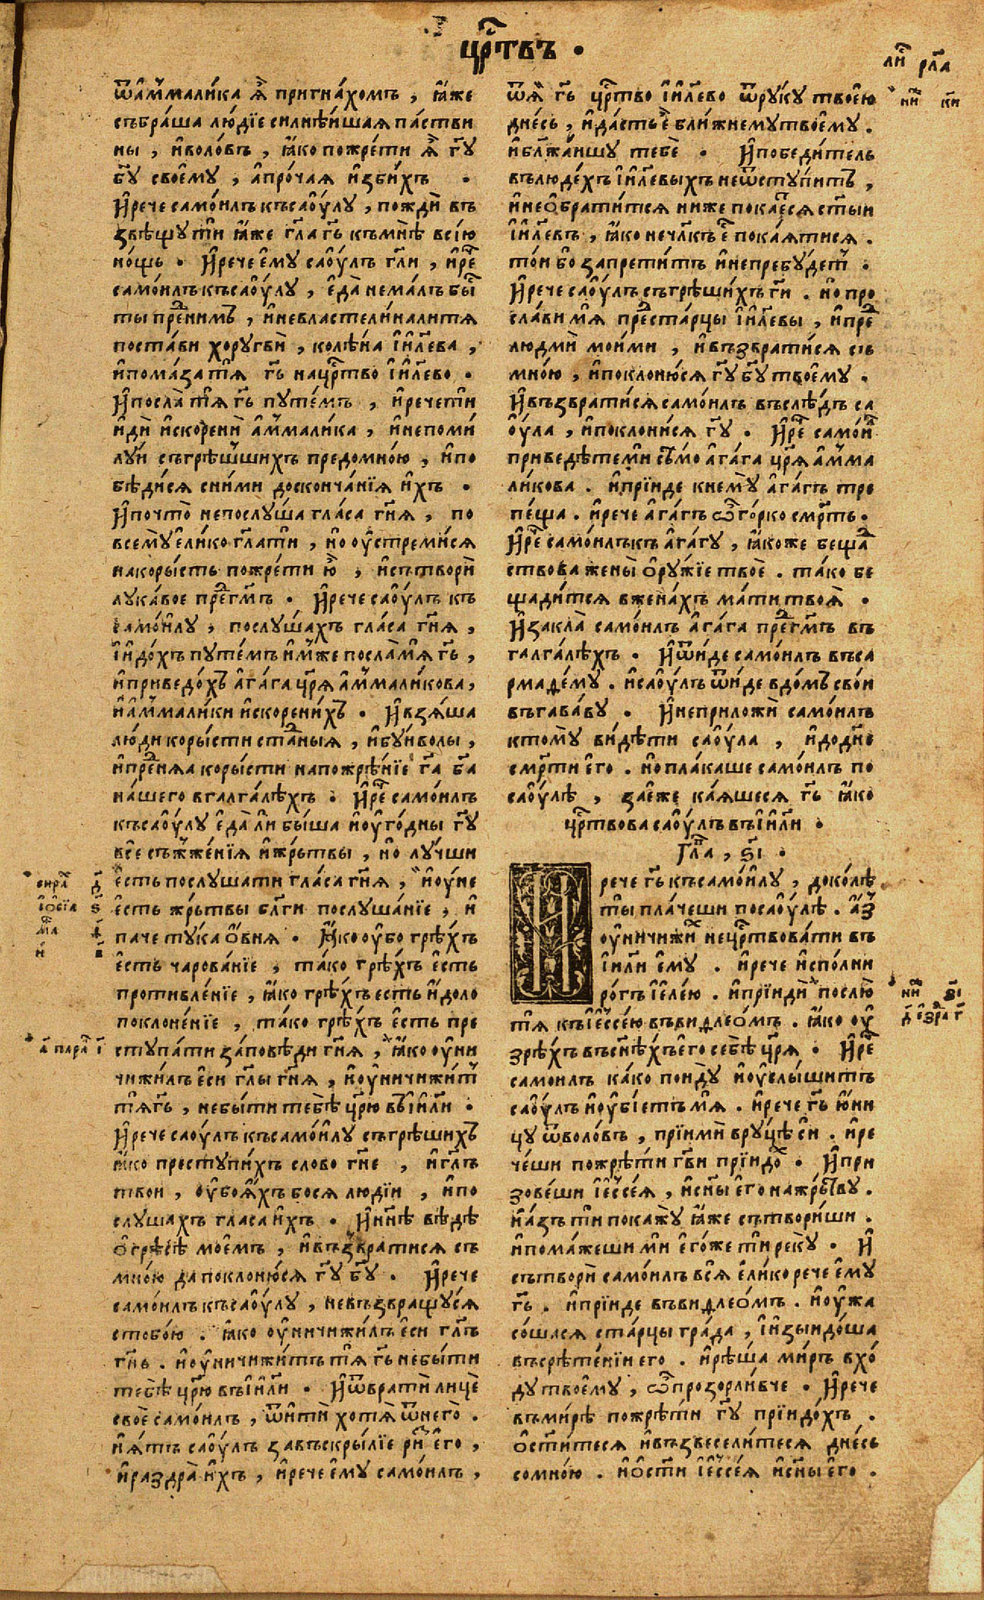 црⷭ҇твъ ·
ли́ рл҃а
ѿа҆ммали́ка ѧ҆̀ пригна́хомъ , ꙗ҆́же
събра́ша лю́дїе силнѣ́йшаѧ па́стви
ны , и҆воло́въ , ꙗ҆́ко пожре́ти ѧ҆̀ гд҇у
бг҃у своє́му , а҆про́чаѧ и҆зби́хъ ·
И҆рече само́илъ къ саоу́лу , пождѝ въ
звѣщу́ ти ꙗ҆́же гл҃а гь҃ къ мнѣ̀ всїю̀
но́щь · И҆рече є҆му саоу́лъ гл҃и , и҆рє́ч
само́илъ къ саоу́лу , є҆да̀ не ма́лъ бы́
ты пре́ними , и҆не властели́на ли тѧ
поста́ви хоругвѝ , колѣ́на і҆и҃лева ,
и҆пома́за тѧ̀ гь҃ на црⷭ҇тво і҆и҃лево .
И҆посла̀ тѧ̀ гь҃ путе́мъ , и҆рече ти
и҆дѝ и҆скоренѝ а҆ммали́ка , и҆непоми́
луй съгрѣ́шших предомно́ю , и҆по
бѣди́сѧ сни́ми досконча́нїѧ и҆́хъ ·
И҆почто̀ непослу́ша гла́са гн҃ѧ , по
всемꙋ̀ є҆ли́ко гл҃а ти , но оу҆стреми́сѧ
на коры́сть пожре́ти ю҆̀ , и҆сътворѝ
лука́вое пре́д гм҃ъ · И҆рече саоу́лъ къ
само́илу , послу́шахъ гла́са гн҃ѧ ,
і҆и҆до́хъ путе́мъ и҆́мже посла́ мѧ гь҃ ,
и҆приведо́хъ а҆га́га цр҃ѧ а҆ммали́кова ,
и҆а҆ммали́ки и҆скорени́хъ · И҆взѧ́ша
лю́ди коры́сти ста́дныѧ , и҆бу́йволы ,
и҆пре́внѧѧ коры́сти на пожре́нїе гд҇а бг҃а
на́шего в галга́лѣхъ · И҆рє́ч само́илъ
къ саоу́лу є҆да̀ ли бы́ша и҆оу҆го́дны гд҇у
всѐ съжже́нїѧ и҆жрътвы , но лу́чши
є҆сть послу́шати гла́са гн҃ѧ , и҆оу́не
є҆сть жрътвы бл҃ги послуша́нїе , и҆
па́че ту́ка о҆́внѧ · Ꙗ҆́ко оу҆бо грѣ́хъ
є҆сть чарова́нїе , та́ко грѣ́хъ є҆сть
противле́нїе , ꙗ҆́ко грѣ́хъ есть и҆́доло
поклоне́нїе , та́ко грѣ́хъ є҆сть пре
ступа́ти за́повѣди гн҃ѧ , ꙗ҆́ко оу҆ни
чижи́лъ є҆си гл҃ы гн҃ѧ , и҆оу҆ничижи́т
тѧ̀ гь҃ , не бы́ти тебѣ̀ цр҃ю въ і҆и҃ли ·
И҆рече саоу́лъ къ само́илу съгрѣши́хъ
ꙗ҆́ко преступи́хъ слово гн҃е , и҆гл҃ъ
твои , оу҆боѧ́хъ бо сѧ людїи , и҆по
слу́шахъ гласа и҆́хъ · И҆нн҃ѣ вѣ́дѣ
о҆грѣ́сѣ мое́мъ , и҆възврати́сѧ съ
мно́ю да поклоню́сѧ гд҇у бг҃у · И҆рече
само́илъ къ саоу́лу , не възвращу́сѧ
стобо́ю . ꙗ҆́ко оу҆ничижи́лъ є҆си гл҃ъ
гн҃ь . и҆оу҆ничижи́тъ тѧ̀ гь҃ не бы́ти
тебѣ̀ цр҃ю въ і҆и҃ли · И҆ѿвратѝ лицѐ
своѐ само́илъ , ѿи҆тѝ хотѧ̀ ѿнего̀ .
и҆ѧ́тъ саоу́лъ за въскры́лїе ри́з є҆го ,
и҆раздра̀ и҆́хъ , и҆рече є҆му само́илъ ,
сира́ д҃
і҆о́сїа ѕ҃
а҃ пара і҃
ѿѧ̀ гь҃ црⷭ҇тво і҆и҃лево ѿруку твоє́ю
дне́сь , и҆да́стъ є҆̀ бли́жнему твоє́му .
и҆бл҃жа́йшу тебѐ · И҆победи́тель
въ лю́дехъ і҆и҃левыхъ не ѿсту́питъ ,
и҆не о҆брати́тсѧ ниже покаєсѧ ст҃ыи
і҆и҃левъ , ꙗ҆́ко нечл҃къ є҆́ пока́ѧтисѧ .
то́и бо запрети́тъ и҆не пребу́дет ·
И҆рече саоу́лъ съгрѣши́хъ ги҃ . но про
сла́ви мѧ̀ пре́д ста́рцы і҆и҃левы , и҆пре́
людмѝ мои́ми , и҆възврати́сѧ съ
мно́ю , и҆поклоню́сѧ гд҇у бг҃у твоє́му ·
И҆възврати́сѧ само́илъ въ слѣ́дъ са
оу́ла , и҆поклони́сѧ гд҇у · И҆рє́ч само́и
приведѣ́те мѝ сѣ́мо а҆га́га цр҃ѧ а҆мма
ли́кова . и҆прїи́де к нему̀ а҆га́гъ тре
пе́ща . и҆рече а҆га́гъ ѽ го́рко смрть ·
И҆рє́ч само́илъ къ а҆га́гу , ꙗ҆́коже беща
ствова жены̀ о҆ру́жїе твоѐ . та́ко бе
щади́тсѧ в жена́хъ ма́ти твоѧ̀ ·
И҆закла̀ само́илъ а҆га́га пре́д гм҃ъ въ
галга́лѣхъ · И҆ѿи́де само́илъ въ са
рмаде́му . и҆саоу́лъ ѿи́де в до́мъ сво́и
въ гава́ву · И҆не приложѝ само́илъ
ктому̀ ви́дѣти саоу́ла , и҆до дн҃е
смр́ти є҆го . но пла́каше само́илъ по
саоу́лѣ , за нє́же ка́ѧшесѧ гь҃ ꙗ҆́ко
црⷭ҇твова саоу́лъ въ і҆и҃ли ·
Гл҃а , ѕ҃і ·
И҆рече гь҃ къ само́илу , до ко́лѣ
ты̀ пла́чеши по саоу́лѣ . а҆́з
оу҆ничижи́ нецрⷭ҇твова́ти въ
і҆и҃ли є҆му . и҆рече и҆спо́лни
ро́гъ і҆єле́ю . и҆прїидѝ послю̀
тѧ̀ къ і҆ѐссе́ю въ виѳлео́мъ . ꙗ҆́ко оу҆
зрѣ́хъ въ сн҃ѣхъ є҆го себѣ̀ цр҃ѧ · И҆рє́ч
самоилъ ка́ко поиду и҆оу҆слы́шитъ
саоу́лъ и҆оу҆бїе́тъ мѧ̀ . и҆рече гь҃ ю҆́ни
цу ѿволо́въ , прїимѝ в ру́цѣ си . и҆ре
че́ши пожрѣ́ти гв҃и прїидо́ · И҆при
зове́ши і҆є҆ссе́ѧ , и҆сн҃ы є҆го на жрътву .
и҆а́зъ ти покажу̀ ꙗ҆́же сътвори́ши .
и҆пома́жеши мѝ є҆го́же ти реку̀ · И҆
сътворѝ само́илъ всѧ̀ є҆ли́ко рече є҆му
гь҃ . и҆прїи́де въ виѳлео́мъ . и҆оу҆жа
со́шасѧ ста́рцы гра́да , і҆и҆зыидо́ша
въ срѣ́тенїи его . и҆рѣ́ша ми́ръ вхо́
ду твоє́му , ѽ прозорли́вче · И҆рече
въ ми́рѣ пожрѣ́ти гд҇у прїидо́хъ .
о҆ст҃и́тесѧ и҆възвесели́тесѧ дне́сь
со мно́ю . и҆о҆ст҃и́ і҆є҆ссе́ѧ и҆сн҃ы є҆го .
ни́ к҃и
ни́ з҃і
д҃ е҆зра г҃